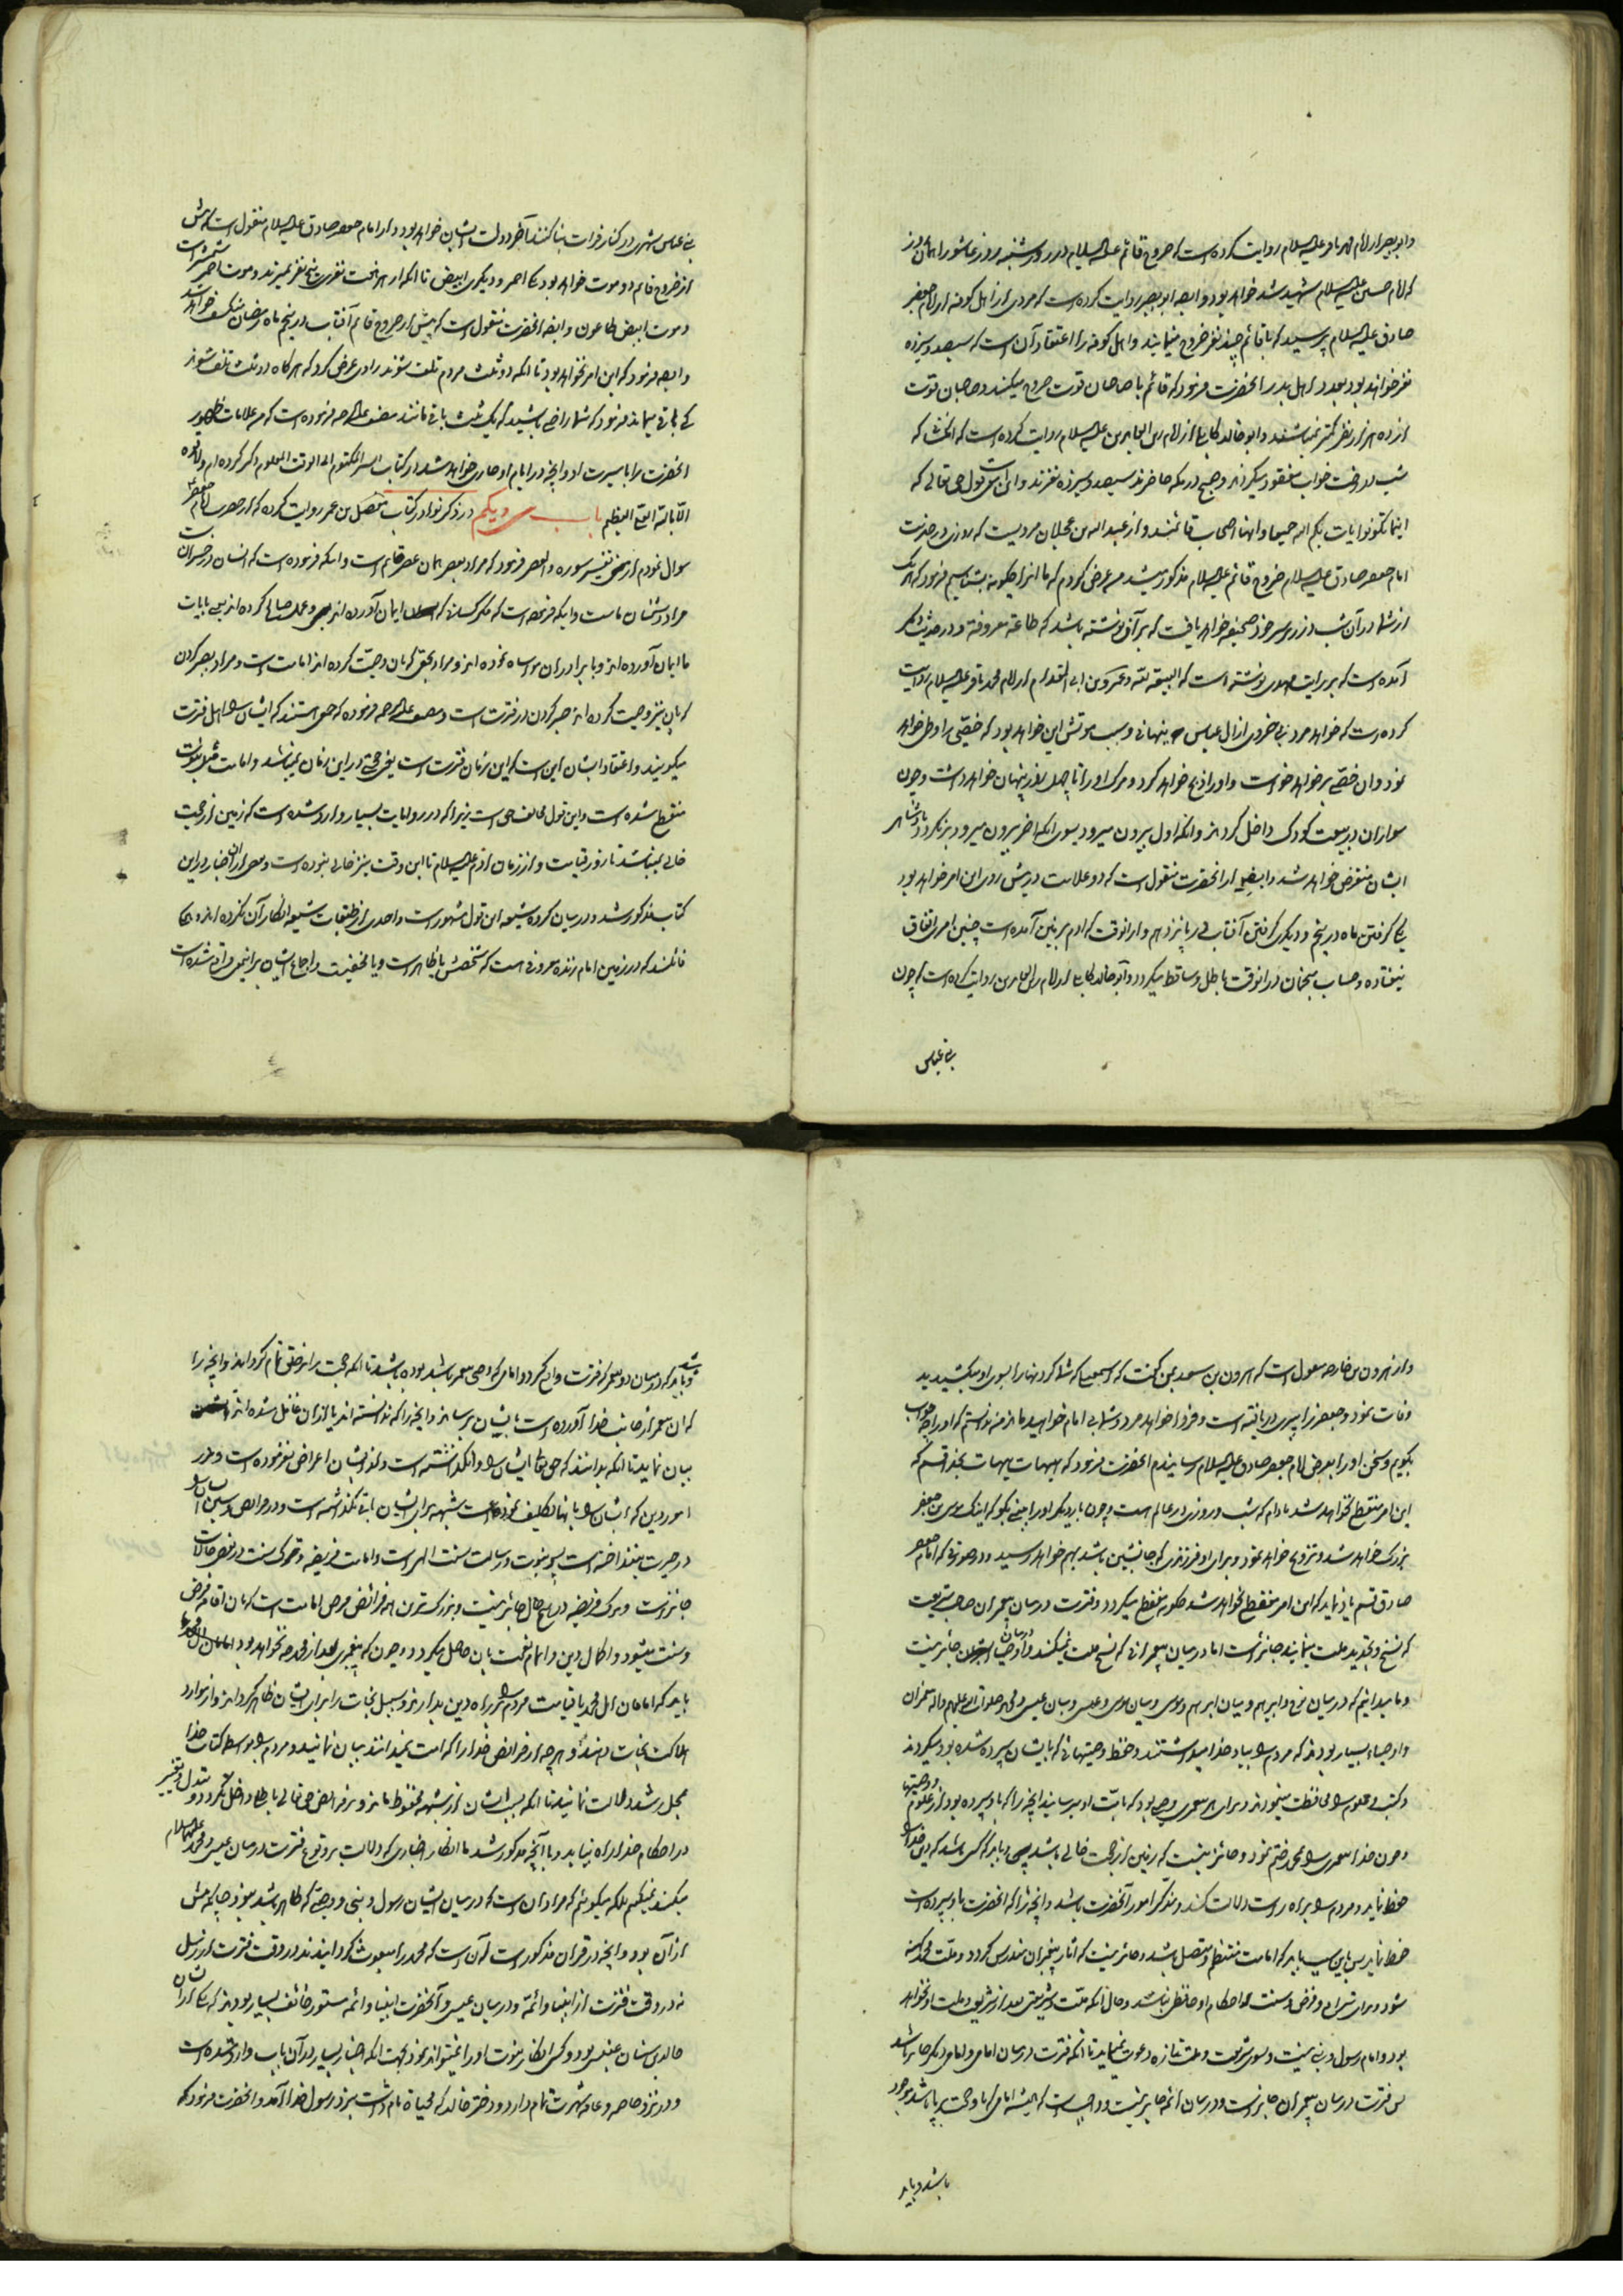 وابوبصیر از امام محمد باقر علیه السلام روایت کرده است که خروج قائم علیه السلام در روز شنبه روز عاشورا همان روز
که امام حسین علیه السلام شهید شد خواهد بود و ایضا ابوبصیر روایت کرده است که مردی از اهل کوفه از امام جعفر
صادق علیه السلام پرسید که با قائم چند نفر خروج مینمایند و اهل کوفه را اعتقاد آن است که سیصد و سیزده
نفر خواهند بود بعدد اهل بدر آنحضرت فرمود که قائم با صاحبان قوت خروج میکند و صاحبان قوت
از ده هزار نفر کمتر نمیباشند و ابوخالد کابلی از امام زین العابدین علیه السلام روایت کرده است که آنحضرت که
شب از رخت خواب مفقود میگردند و صبح در مکه حاضرند سیصد و سیزده نفرند و این است قول حق تعالی که
اینما تکونوا یات بکم الله جمیعا و اینها اصحاب قائمند و از عبدالله بن عجلان مرویست که روزی در حضرت
امام جعفر صادق علیه السلام خروج قائم علیه السلام مذکور میشد من عرض کردم که ما آنرا چگونه بشناسیم فرمود که هر یک
از شما در آن شب در زیر سر خود صحیفه خواهد یافت که بر آن نوشته باشد که طاعة معروفة و در حدیث دیگر
آمده است که بر رایت مهدی نوشته است که البیعة لله و عمرو بن ابی المقدام از امام محمد باقر علیه السلام روایت
کرده است که خواهد مرد از آل عباس پنهانی و سبب موتش این خواهد بود که خصیی را وطی خواهد
نمود و آن خصی بر خواهد خواست و او را ذبح خواهد کرد و مرک او را تا چهل روز پنهان خواهد داشت و چون
سواران در بیعت کودک داخل گردند و آنکه اول بیرون میرود بسوی آنکه آخر بیرون میرود بر نگردد
ایشان منقرض خواهد شد و ایضا از آنحضرت منقول است که دو علامت در پیش روی این امر خواهد بود
یکی گرفتن ماه در پنجم و دیگری گرفتن آفتاب در پانزدهم و از آنوقت که آدم بر زمین آمده است چنین امری اتفاق
نیفتاده و حساب منجمان در آنوقت باطل و ساقط میگردد و ابوخالد کابلی از امام زین العابدین روایت کرده است که چون
بنی عباس
بنی عباس شهری در کنار فرات بنا کنند آخر دولت ایشان خواهد بود و از امام جعفر صادق علیه السلام منقول است که پیش
از خروج قائم دو موت خواهد بود یکی احمر و دیگری ابیض تا آنکه از هر هفت نفر پنج نفر بمیرند و موت احمر شمشیر است
و موت ابیض طاعون و ایضا از آنحضرت منقول است که پیش از خروج قائم آفتاب در پنجم ماه رمضان منکسف خواهد شد
و ایضا فرمود که این امر نخواهد بود تا آنکه دو ثلث مردم تلف شوند راوی عرض کرد که هرگاه دو ثلث تلف شوند
که باقی میماند فرمود که شما راضی نباشید که یک ثلث باقی مانند مصنف علیه الرحمه فرموده است که من علامات ظهور
آنحضرت را با سیرت او و آنچه در ایام او جاری خواهد شد در کتاب السر المکتوم الی الوقت المعلوم ذکر کرده ام ولا قوة
الا بالله العلی العظیم باب سی و یکم در ذکر نوادر کتاب مفضل بن عمر روایت کرده که از حضرت امام جعفر
سوال نمودم از معنی تفسیر سوره والعصر فرمود که مراد بعصر همان عصر قائم است و اینکه فرموده است که انسان در خسران است
مراد دشمنان ماست و اینکه فرموده است که مگر کسانی که ایمان آورده اند و عمل صالح کرده اند یعنی بایات
ما ایمان آورده اند و با برادران مواساه نموده اند و مراد بحق که بآن وصیت کرده اند امامت است و مراد بصبر کردن
که بآن نیز وصیت کرده اند صبر کردن در فترت است و مصنف علیه الرحمه فرموده که جمعی هستند که ایشان را اهل فترت
میگویند و اعتقاد ایشان این است که این زمان فترت است یعنی حجتی در این زمان نمیباشد و امامت مثل نبوت
منقطع شده است و این قول مخالف حق است زیرا که در روایات بسیار وارد شده است که زمین از حجت
خالی نمیباشد تا روز قیامت و از زمان آدم علیه السلام تا این وقت نیز خالی نبوده است و بعضی از آن اخبار در این
کتاب مذکور شد و در میان گروه شیعه این قول مشهور است و احدی از طبقات شیعه انکار آن نکرده اند و همگی
قائلند که در زمین امام زنده معروفی است که شخصش یا ظاهر است و یا مخفیست و اجماع ایشان بر اینمعنی واقع شده است
و از هرون بن خارجه منقول است که هرون بن سعد بمن گفت که اسمعیل که شما گردنها را بسوی او میکشیدید
وفات نمود و جعفر نیز پیری دریافته است و فردا خواهد مرد و شما بی امام خواهید ماند من ندانستم که او را چه جواب
بگویم و سخن او را بعرض امام جعفر صادق علیه السلام رسانیدم آنحضرت فرمود که هیهات هیهات بخدا قسم که
این امر منقطع نخواهد شد مادام که شب و روزی در عالم هست و چون بار دیگر او را ببینی بگو که اینک موسی بن جعفر
بزرگ خواهد شد و تزویج خواهد نمود و برای او فرزندی که جانشین باشد بهم خواهد رسید و در صورتی که امام جعفر
صادق قسم یاد نماید که این امر منقطع نخواهد شد چگونه منقطع میگردد و فترت در میان پیغمبران صاحب شریعت
که نسخ و تجدید ملت مینمایند جایز است اما در میان پیغمبرانی که نسخ ملت نمیکنند و در میان اوصیا جائز نیست
و ما میدانیم که در میان نوح و ابرهیم و میان ابراهیم و موسی و میان موسی و عیسی و میان عیسی و محمد صلوات الله علیهم و آله پیغمبران
و اوصیاء بسیار بودند که مردم را بیاد خدا میداشتند و حفظ وصیتهائی که بایشان سپرده شده بود میکردند
و کتب و علوم را محافظت مینمودند و برای هر پیغمبری وصیی بود که بامت او برساند آنچه را که باو سپرده بود از علوم و وصیتها
و چون خدا پیغمبری را بمحمد ختم نمود و جائز نیست که زمین از حجت خالی باشد پس باید که کسی باشد که دین خدا را
حفظ نماید و مردم را براه راست دلالت کند و متذکر امور آنحضرت باشد و آنچه را که آنحضرت باو سپرده است
حفظ نماید پس باین سبب باید که امامت منتظم و متصل باشد و جائز نیست که آثار پیغمبران مندرس گردد و ملت محمد کهنه
شود و برای شرایع و فرض و سنت و احکام او حافظی نباشد و حال آنکه ملت و شریعتی بعد از شریعت و ملت او نخواهد
بود و امام رسول و نبی نیست و بسوی شریعت و ملت تازه دعوت نمینماید تا آنکه فترت در میان امامی و امامی دیگر جایز باشد
پس فترت در میان پیغمبران جایز است و در میان ائمه جایز نیست و واجب است که همیشه امامی که باو حجت برپا باشد موجود
باشد و باید
باشد و باید که در میان دو پیغمبر که فترت واقع گردد امامی که وصی پیغمبر باشد بوده باشد تا آنکه حجت را بر خلق تمام گرداند و آنچه را
که آن پیغمبر از جانب خدا آورده است بایشان برساند و آنچه را که ندانسته اند یا از آن غافل شده اند
بیان نماید تا آنکه بدانند که حق تعالی ایشان را وانگذاشته است و از ایشان اعراض نفرموده است و در
امور دین که ایشان را بآنها تکلیف نموده است شبهه برای ایشان باقی نگذاشته است و در فرایض و سنن ایشان را
در حیرت نینداخته است پس نبوت و رسالت سنت الهی است و امامت فریضه و ترک سنت در بعض حالات
جائز است و ترک فریضه در هیچ حال جائز نیست و بزرگترین فرائض فرض امامت است که بآن اقامه فرض
و سنت میشود و اکمال دین و اتمام نعمت بآن حاصل میگردد و چون که پیغمبری بعد از محمد نخواهد بود
باید که امامان آل محمد تا قیامت مردم را بر راه دین بدارند و سبیل نجات را برای ایشان ظاهر گردانند و از موارد
هلاکت نجات دهند و هر چه از فرایض خدا را که امت نمیدانند بیان نمایند و مردم را بواسطه کتاب خدا
دلالت نمایند تا آنکه بسبب ایشان از شبهه محفوظ مانند و در فرایض حق تعالی باطل داخل نگردد و تبدل و تغییر
در احکام خدا راه نیابد و با آنچه مذکور شد ما انکار اخباری که دلالت بر وقوع فترت در میان عیسی و محمد علیهما السلام
میکند نمیکنیم بلکه میگوئیم که مراد از آن است که در میان ایشان رسول و نبی و وصیی که ظاهر باشد نبود چنانکه پیش
از آن بود و آنچه در قرآن مذکور است آن است که محمد را مبعوث گردانیدند در وقت فترت از رسل
نه در وقت فترت از انبیا و ائمه و در میان عیسی و آنحضرت انبیا و ائمه مستور خائف بسیار بودند که یکی از ایشان
خالد بن سنان عبسی بود و کسی انکار نبوت او را نمیتواند نمود بجهت آنکه اخبار بسیار در آن باب وارد شده است
و در نزد خاصه و عامه شهرت تمام دارد و دختر خالد که محیاة نام داشت بنزد رسول خدا آمد و آنحضرت فرمود که